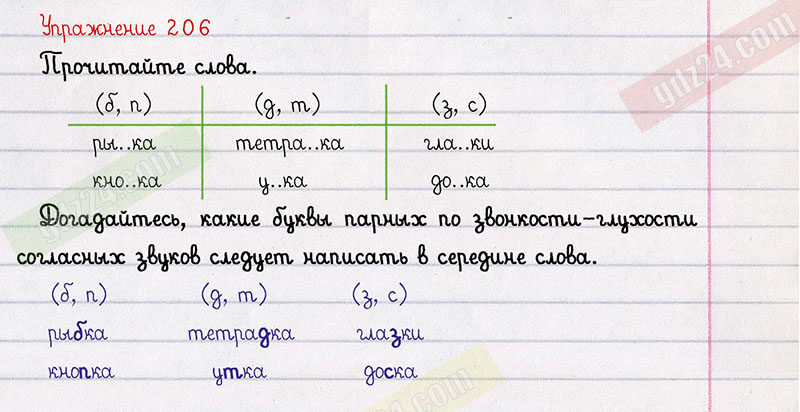 Упражнение 206
Прочитайте слова.
(б, п) (д, т) (з, с)
ры..ка тетра..ка гла..ки
кно..ка у..ка до..ка
Догадайтесь, какие буквы парных по звонкости-глухости
согласных звуков следует написать в середине слова.
(б, п) (д, т) (з, с)
рыбка тетрадка глазки
кнопка утка доска
gdz24.com
gdz24.com